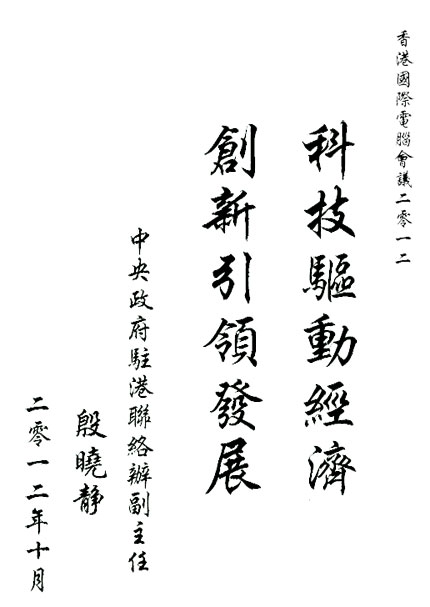 香港國際電腦會議二零一二
科技驅動經濟
創新引領發展
中央政府駐港聯絡辦副主任
殷曉静
二零一二年十月